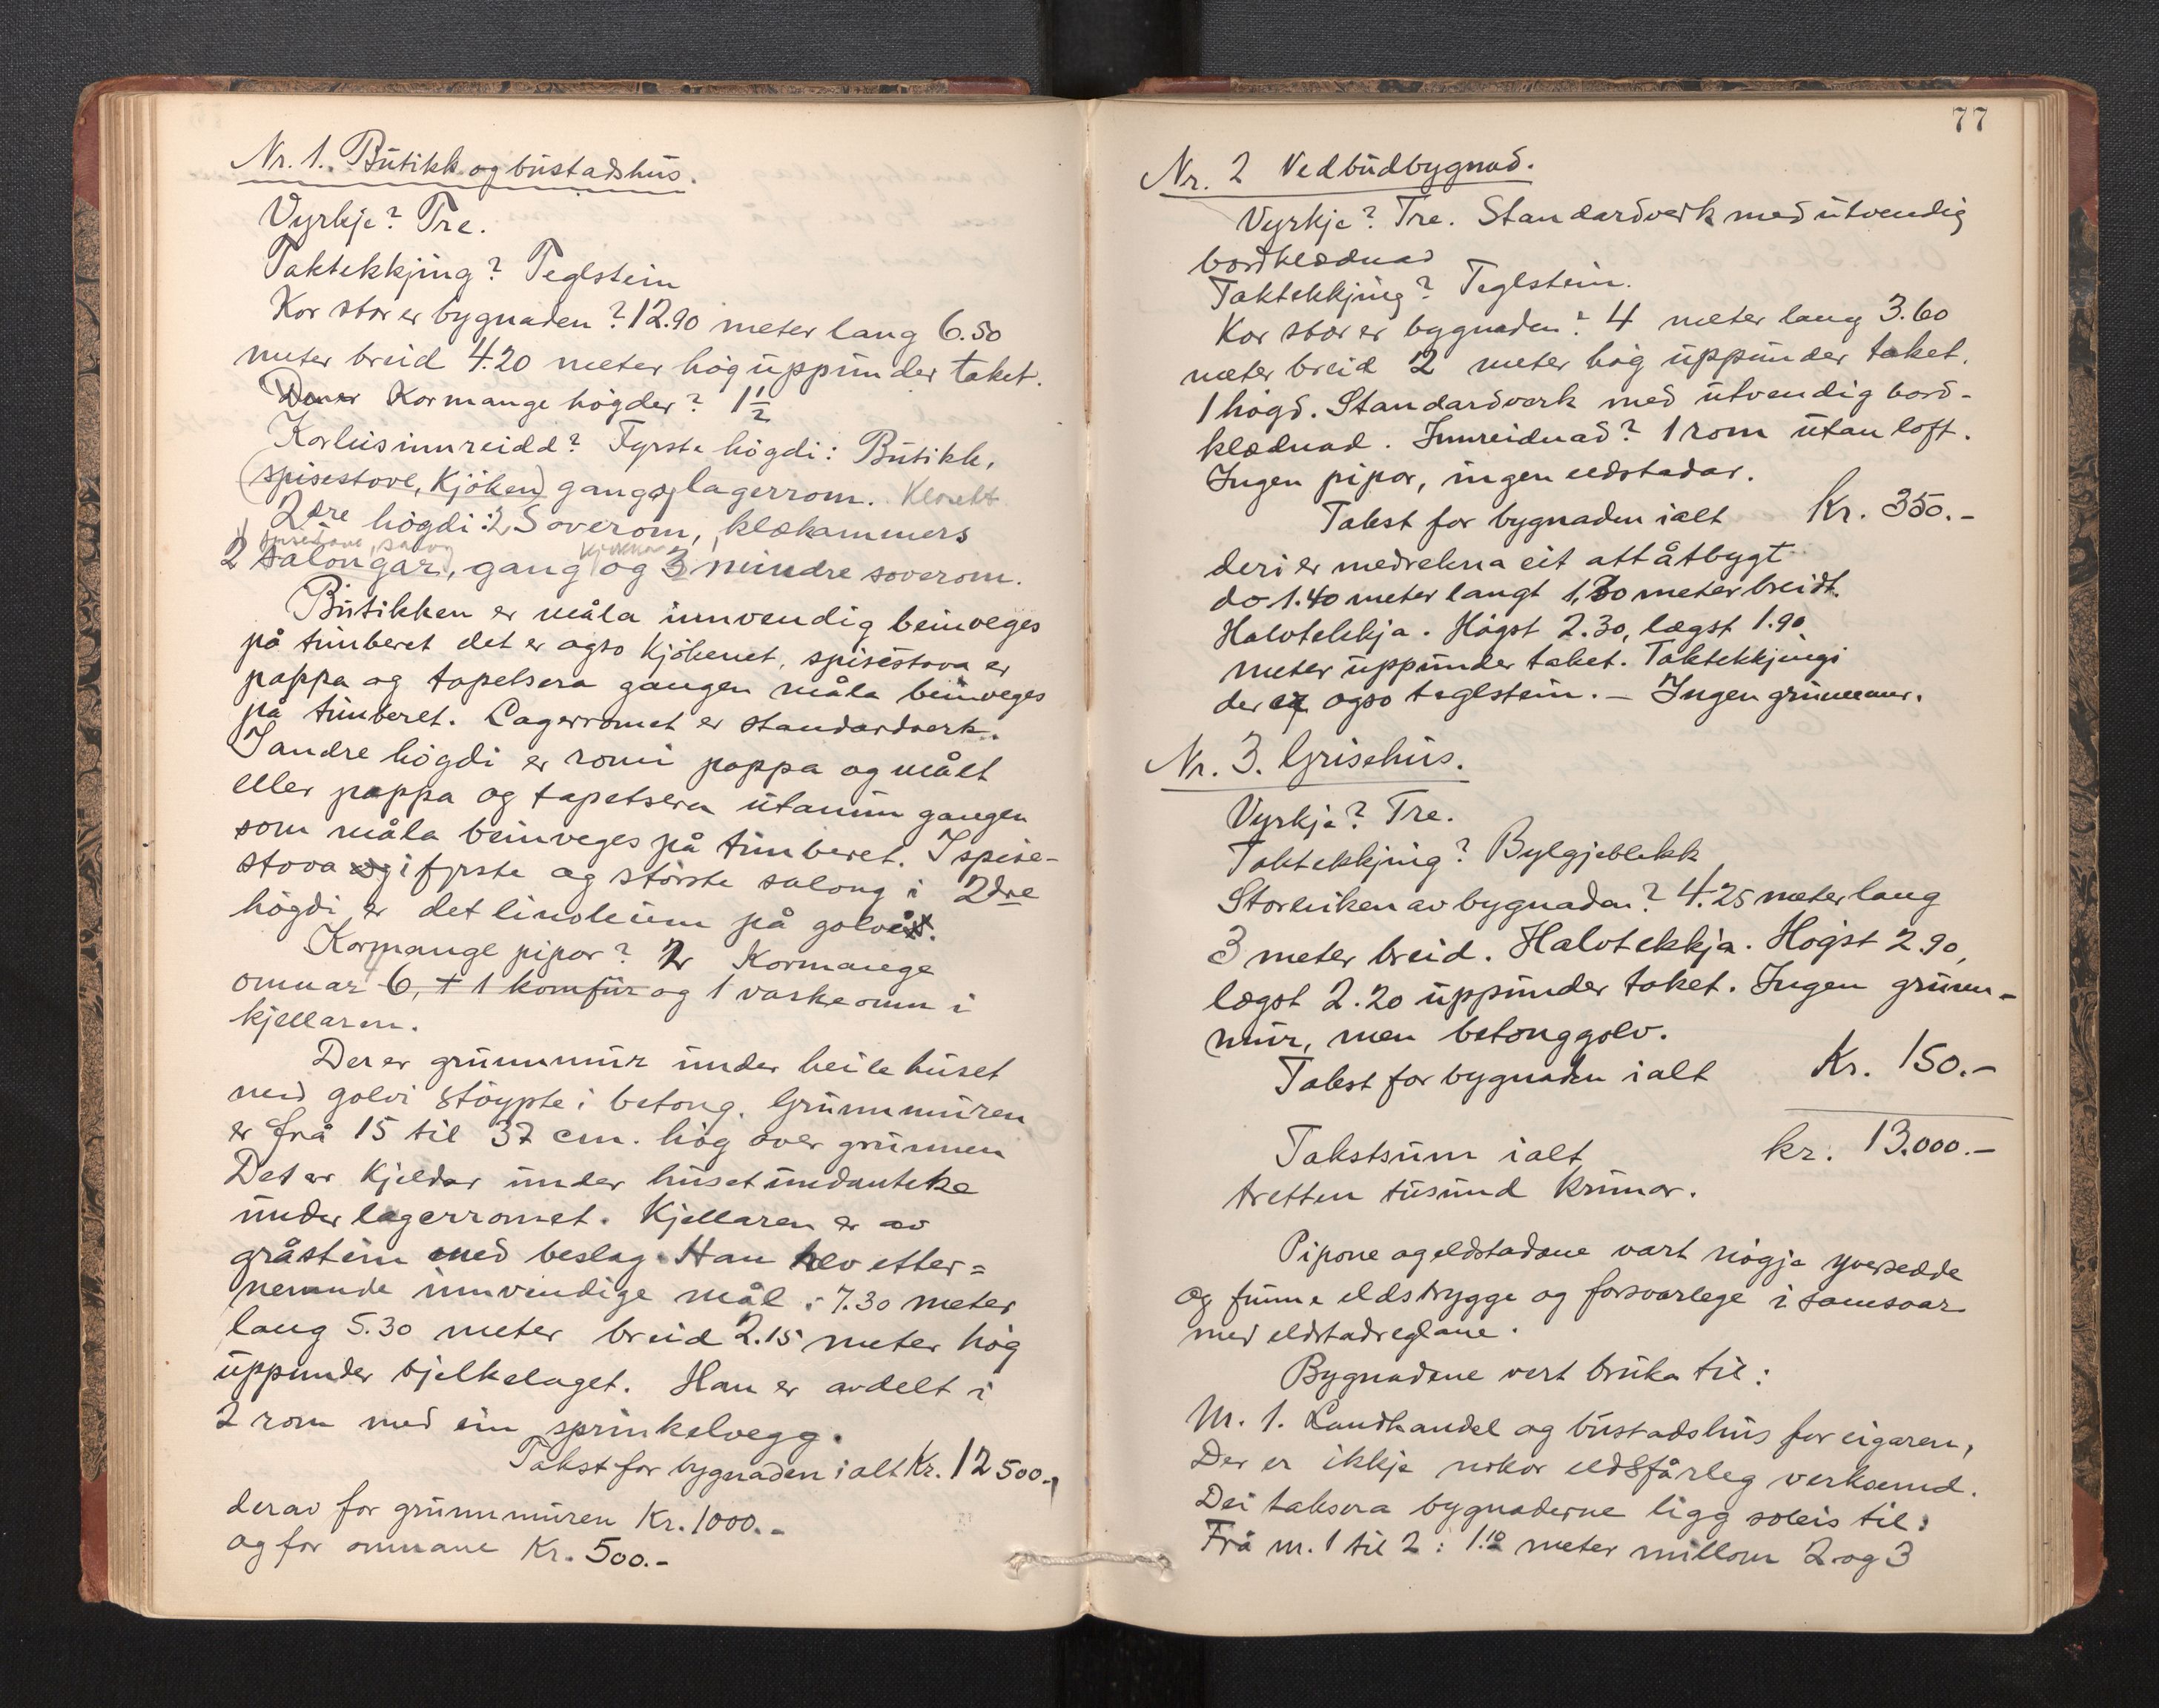 Nr. 1. Butikk og bustadshus.
Vyrkje? Tre.
Taktekkjing? Teglstein
Kor stor er bygnaden? 12.90 meter lang 6.50
meter breid 4.20 meter høg uppunder taket.
Kor mange högder? 1 1/2
Korleis innreidd? Fyrste högdi: Butikk,
(spisestove, Kjöken) gang og lagerrom. Klosett
2dre högdi: 2 Soverom, klækammers
spisestove, salong kjöken
2 salongar, gang og 3 mindre soverom.
Butikken er måla innvendig beinveges
på timberet det er ogso kjökenet, spisestova er
pappa og tapetsera gangen måla beinveges
på timberet. Lagerromet er standardverk.
I andre högdi er romi pappa og målt
eller pappa og tapetsera utanum gangen
som måla beinveges på timberet. I spise-
stova og i fyrste og störste salong i 2dre
högdi er det linoleum på golvet.
Kor mange pipor? 2 Kor mange
omnar 6, + 1 komfür og 1 vaskeomn i
kjellaren.
Der er grunnmur under heile huset
med golvi stöypte i betong. Grunnmuren
er frå 15 til 37 cm. høg over grunnen
Det er Kjeldar under huset undanteke
under lagerromet. Kjellaren er av
gråstein med beslag. Han hev etter=
nemnde innvendige mål: 7.30 meter
lang 5.30 meter breid 2.15 meter høg
uppunder bjelkelaget. Han er avdelt i
2 rom med ein sprinkelvegg.
Takst for bygnaden i alt Kr. 12 500.-
derav for grunnmuren Kr. 1000.-
og for omnane Kr. 500.-
77
Nr. 2 Vedbudbygnad.
Vyrkje? Tre. Standardverk med utvendig
bordklædnad
Taktekkjing? Teglstein.
Kor stor er bygnaden? 4 meter lang 3.60
meter breid 2 meter høg uppunder taket.
1 högd. Standardverk med utvendig bord-
klædnad. Innreidnad? 1 rom utan loft.
Ingen pipor, ingen eldstadar.
Takst for bygnaden ialt Kr. 350.-
deri er medrekna eit attåtbygt
do 1.40 meter langt 1,30 meter breidt.
Halvtekkja. Høgst 2.30, lægst 1.90
meter uppunder taket. Taktekkjingi
der er ogso teglstein. – Ingen grunnmur.
Nr. 3. Grisehus.
Vyrkje? Tre.
Taktekkjing? Bylgjeblekk
Storleiken av bygnaden? 4.25 meter lang
3 meter breid. Halvtekkja. Høgst 2.90,
lægst 2.20 uppunder taket. Ingen grunn-
mur, men betonggolv.
Takst for bygnaden ialt Kr. 150.-
Takstsum ialt kr. 13.000.-
tretten tusund krunor.
Pipone og eldstadane vart nögje yversedde
og funne eldstrygge og forsvarlege i samsvar
med eldstadreglane.
Bygnadene vert bruka til:
Nr. 1. Landhandel og bustadshus for eigaren,
Der er ikkje nokor eldsfårleg verksemd.
Dei taksera bygnaderne ligg soleis til:
Frå nr. 1 til 2: 1.10 meter millom 2 og 3